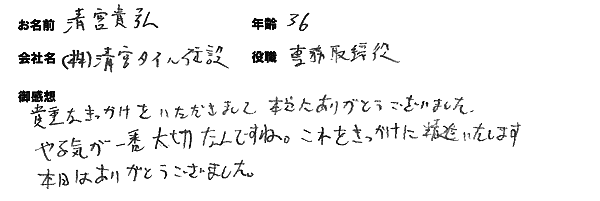 お名前 清宮貴弘 年齢 36
会社名 (株)清宮タイル住設 役職 専務取締役
御感想
貴重なきっかけをいただきまして 本当にありがとうございました。
やる気が一番大切なんですね。これをきっかけに精進いたします
本日はありがとうございました。